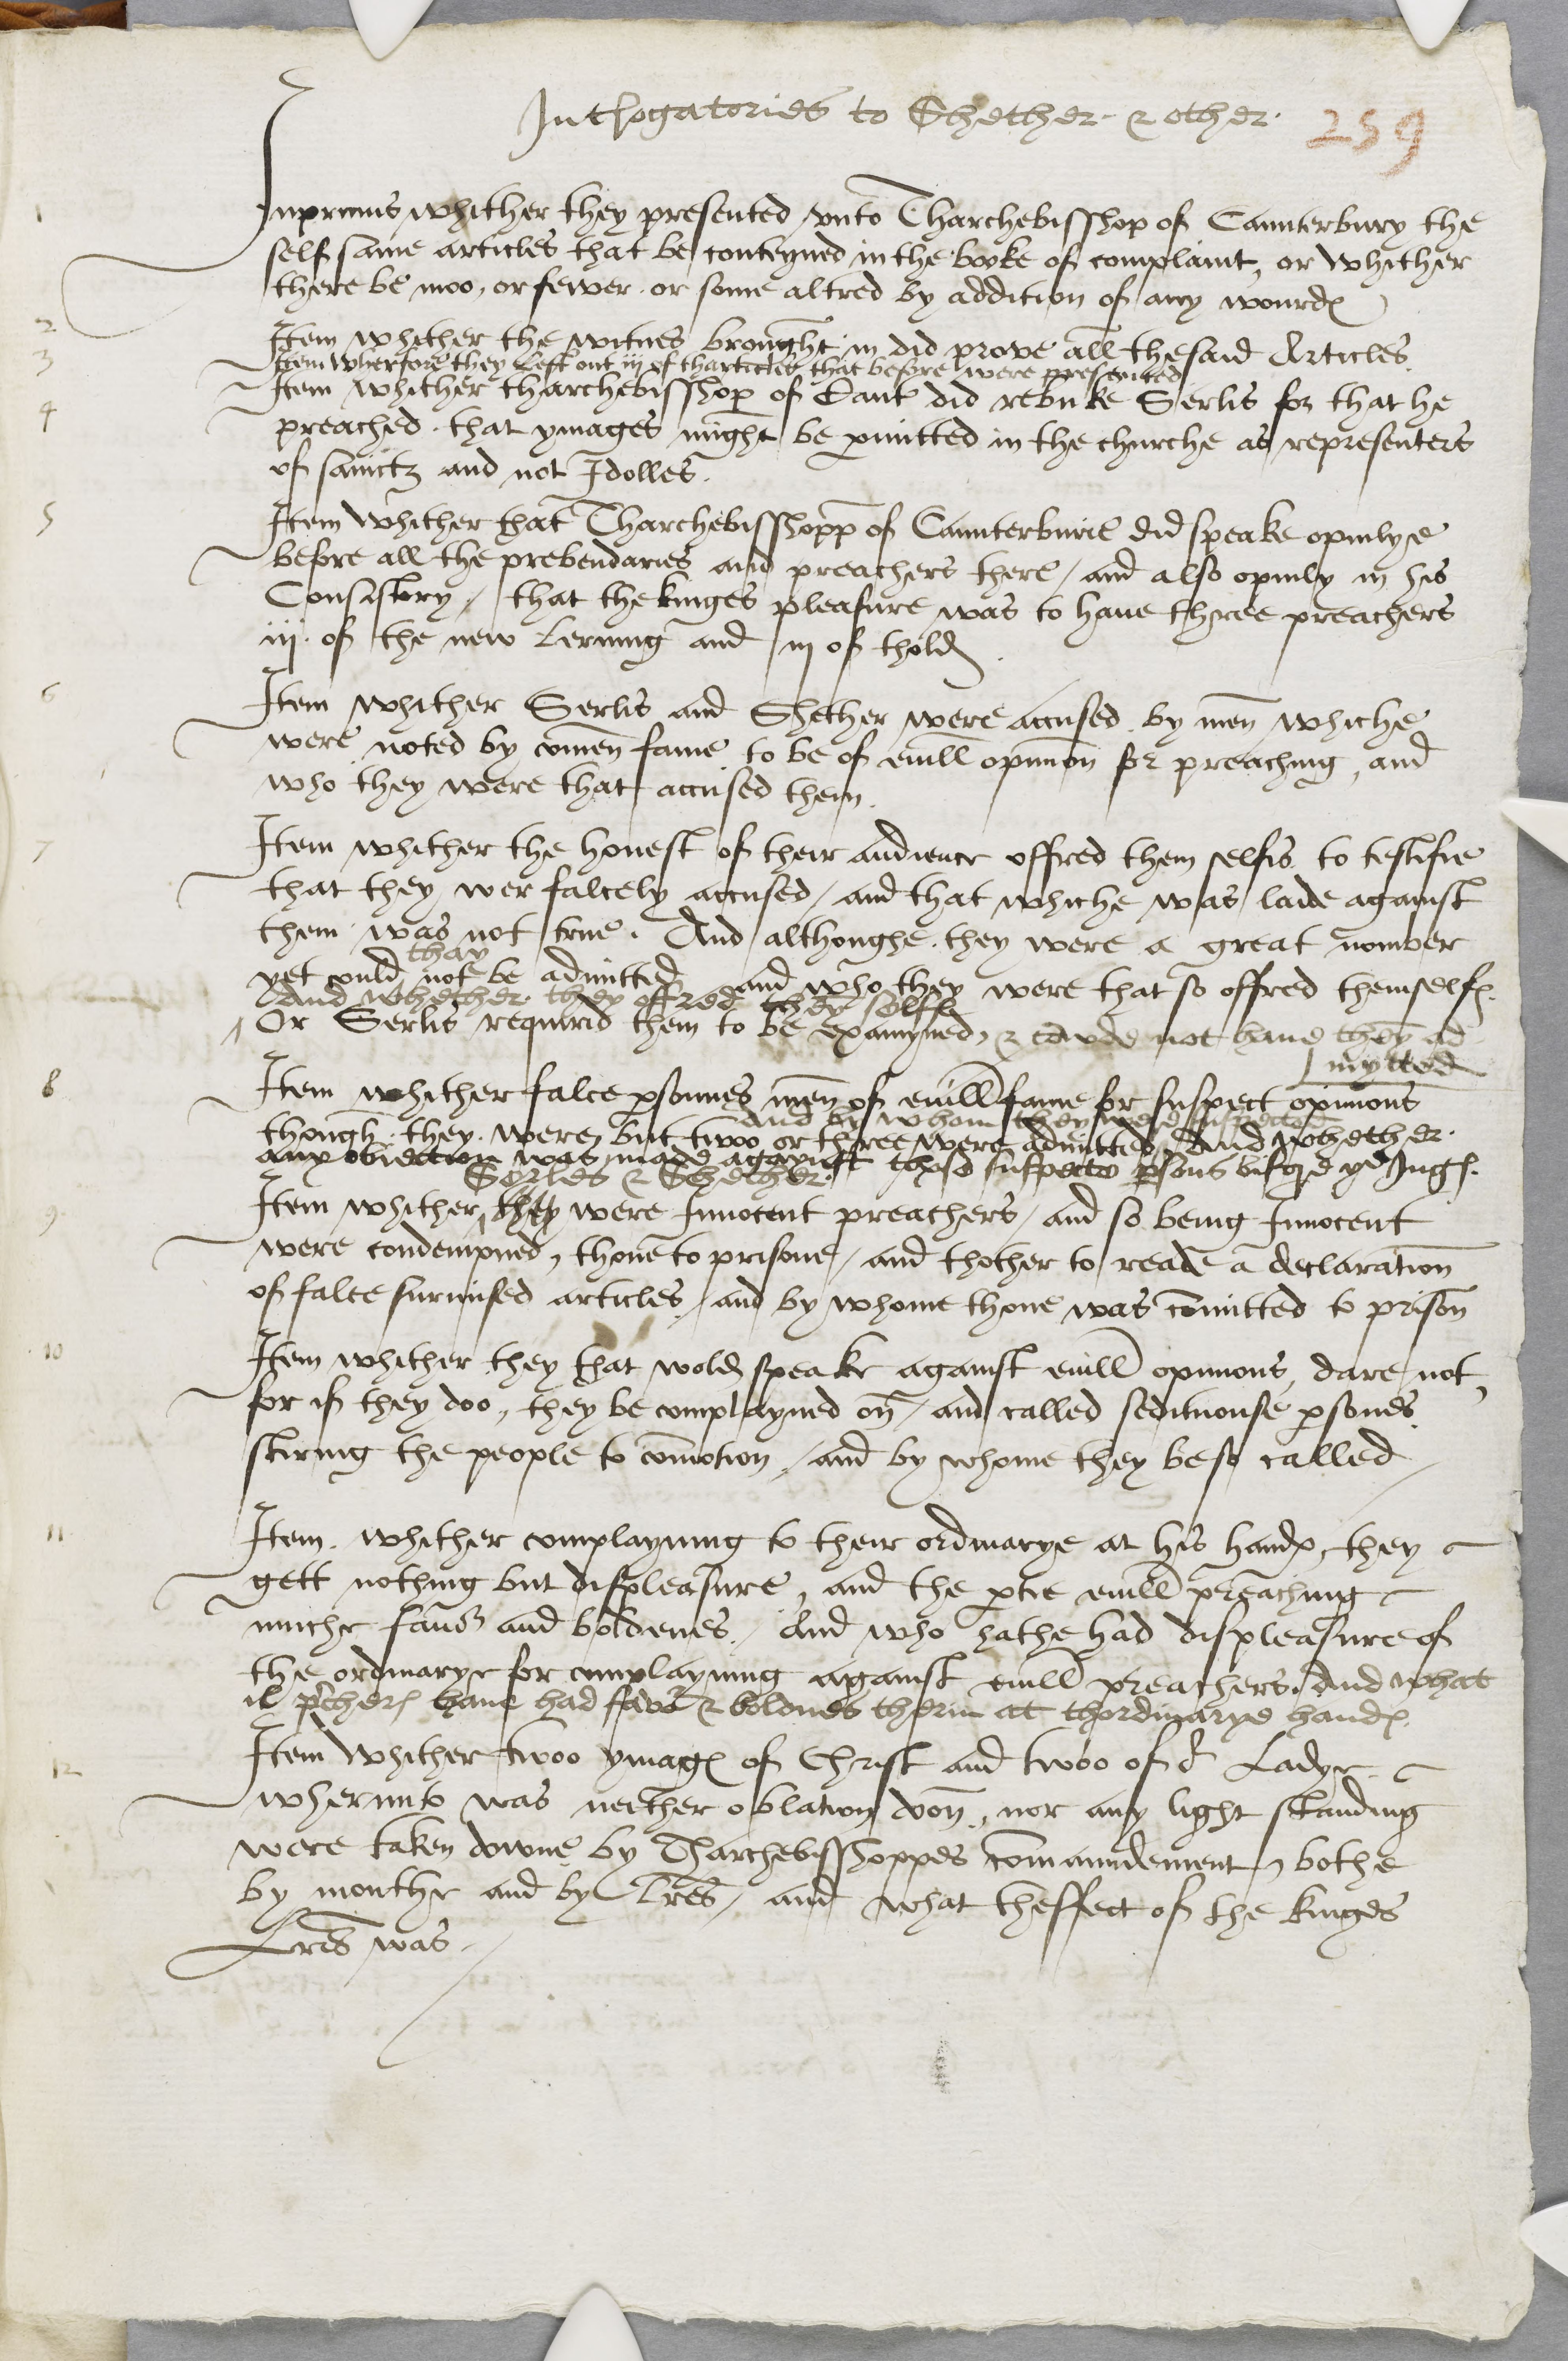 Int'rogatories to Shether & other.
259
1 Inprimis whither they presented vnto Tharchebisshop of Caunterbury the
self same articles that be conteyned in the booke of complaint, or whither
there be moo, or fewer. or some altred by addition of any wourdes
2 Item whither the witnes brought in did prove all the said Articles
3 Item Wherfore they Left out iij of tharticles that before were presented
4 Item whither tharchebisshop of Cant did rebuke Serlis for that he
preached. that ymages might be pmitted in the churche as representers
of sainctz and not Idolles.
5 Item whither that Tharchebisshopp of Caunterburie did speake opinlye
before all the prebendaries and preachers there / and also opinly in his
Consistory / that the kinges pleasure was to haue three preachers
iij. of the new lerning and iij of thold
6 Item whither Serlis and Shether were accused by men whiche
were noted by comen fame to be of euill opinion for preaching, and
who they were that accused them.
7 Item whither the honest of their audience offred them selfis to testifie
that they wer falcely accused / and that whiche was laide against
them was not true. And althoughe they were a great nomber
thay
yet could not be admitted and who they were that so offred themselfes.
And whether they offred them selffe
Or Serlis required them to be examyned, & cowde not haue them ad
mytted
8 Item whither falce psonnes men of euill fame or suspect opinions
And by whom they were suspected
though they were but twoo or three were admitted, And whether
any obiection was made agaynst thes suspecte psons bifore ye Juges.
Serles & Shether.
9 Item whither they were Innocent preachers / and so being Innocent
were condempned, thone to prisone / and thother to reade a declaration
of falce surmised articles, / and by whome thone was comitted to prison
10 Item whither they that wold speake against euill opinions, dare not
for if they doo, they be complayned on / and called seditiouse psones
stiring the people to comotion / and by whome they be so called
11 Item. whither complayning to their ordinarye at his handes, they
gett nothing but displeasure, and the ptie euill preaching
muche fauor and boldenes. / And who hathe had displeasure of
the ordinarye for complayning against euill preachers. And what
il pchers haue had favor & boldnes therin at thordinarye handes.
12 Item Whither twoo ymages of Christ and twoo of or Ladye
wherunto was neither oblation don, nor any light standing
were taken downe by Tharchebisshoppes comaundement, bothe
by mouthe and by Lres, / and what theffect of the kinges
Lres was.